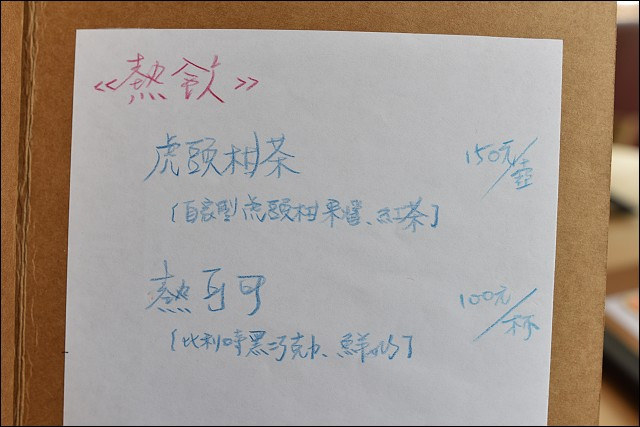 <<熱飲>>
虎頭柑茶 150元/壺
[自家型虎頭柑果醬、紅茶]
熱可可 100元/杯
[比利時黑巧克力、鮮奶]